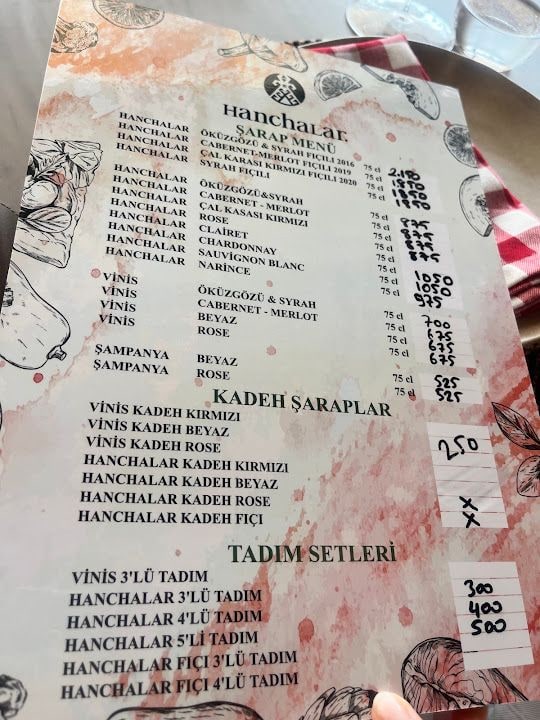 Hanchalar
ŞARAP MENÜ
HANCHALAR ÖKÜZGÖZÜ & SYRAH FIÇILI 2016 75 cl
HANCHALAR CABERNET-MERLOT FIÇILI 2019 75 cl 1850
HANCHALAR ÇAL KARASI KIRMIZI FIÇILI 2020 75 cl 1850
HANCHALAR SYRAH FIÇILI 75 cl 1850
HANCHALAR ÖKÜZGÖZÜ&SYRAH 75 cl 875
HANCHALAR CABERNET - MERLOT 75 cl 875
HANCHALAR ÇAL KASASI KIRMIZI 75 cl 875
HANCHALAR ROSE 75 cl 875
HANCHALAR CLAIRET
HANCHALAR CHARDONNAY 75 cl 1050
HANCHALAR SAUVİGNON BLANC 75 cl 1050
HANCHALAR NARİNCE 75 cl 975
VİNİS ÖKÜZGÖZÜ & SYRAH 75 cl 700
VİNİS CABERNET - MERLOT 75 cl 675
VİNİS BEYAZ 75 cl 675
VİNİS ROSE 75 cl 675
ŞAMPANYA BEYAZ 75 cl 525
ŞAMPANYA ROSE 75 cl 525
KADEH ŞARAPLAR
VİNİS KADEH KIRMIZI
VİNİS KADEH BEYAZ 250
VİNİS KADEH ROSE
HANCHALAR KADEH KIRMIZI
HANCHALAR KADEH BEYAZ
HANCHALAR KADEH ROSE X
HANCHALAR KADEH FIÇI X
TADIM SETLERİ
VİNİS 3'LÜ TADIM 300
HANCHALAR 3'LÜ TADIM 400
HANCHALAR 4'LÜ TADIM 500
HANCHALAR 5'Lİ TADIM
HANCHALAR FIÇI 3'LÜ TADIM
HANCHALAR FIÇI 4'LÜ TADIM